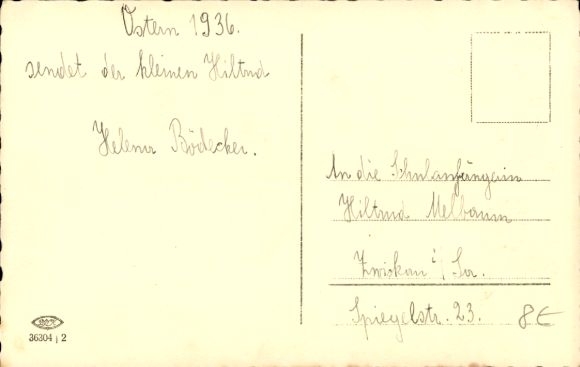 Ostern 1936.
sendet der kleinen Hiltrud
Helena Bödecker.
An die Schulanfängerin
Hiltrud Melbaum
Zwickau i/ Sa.
Spiegelstr. 23.
8€
36304 / 2